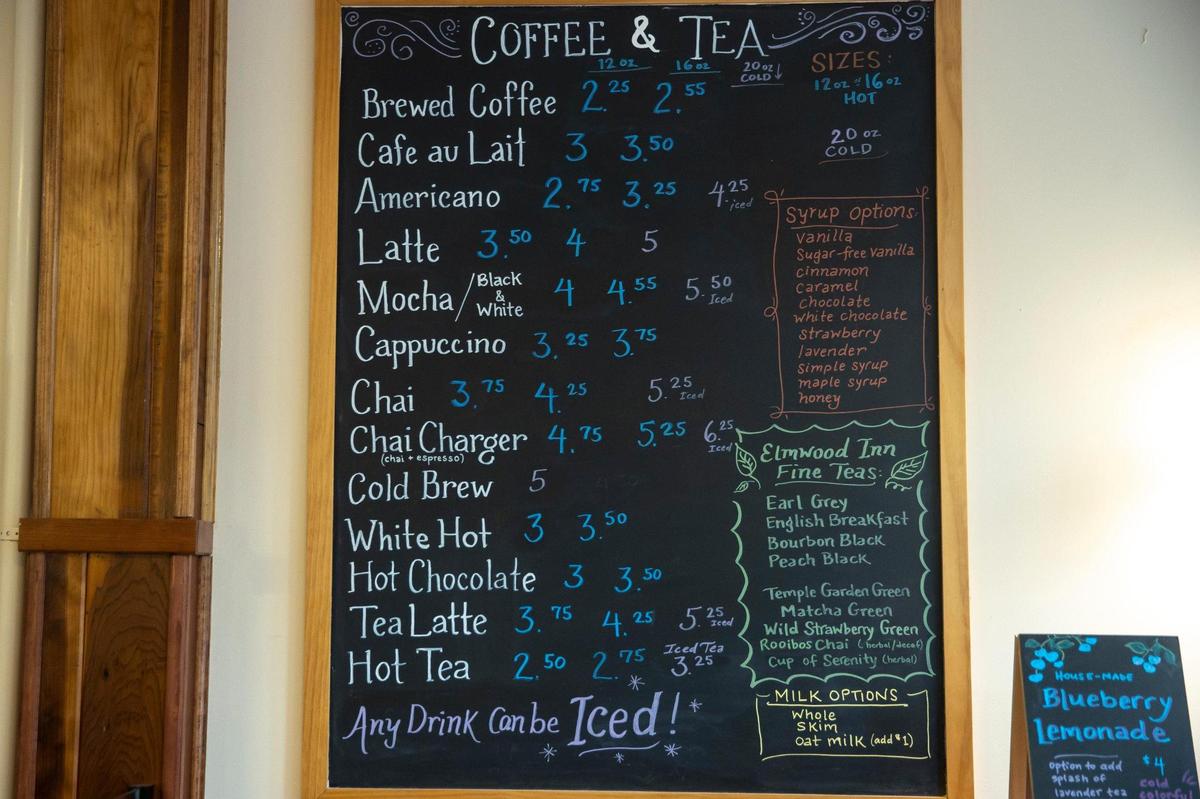 COFFEE & TEA
12 oz 16 oz 20 oz COLD↓
Brewed Coffee 2.25 2.55
Cafe au Lait 3 3.50
Americano 2.75 3.25 4.25 iced
Latte 3.50 4 5
Mocha/Black & White 4 4.55 5.50 Iced
Cappuccino 3.25 3.75
Chai 3.75 4.25 5.25 Iced
Chai Charger 4.75 5.25 6.25 Iced
(chai + espresso)
Cold Brew 5
White Hot 3 3.50
Hot Chocolate 3 3.50
Tea Latte 3.75 4.25 5.25 Iced
Hot Tea 2.50 2.75 Iced Tea 3.25
Any Drink Can be Iced!
SIZES:
12 oz or 16 oz
HOT
20 oz
COLD
Syrup Options:
Vanilla
Sugar-free vanilla
cinnamon
caramel
chocolate
white chocolate
strawberry
lavender
simple syrup
maple syrup
honey
Elmwood Inn
Fine Teas:
Earl Grey
English Breakfast
Bourbon Black
Peach Black
Temple Garden Green
Matcha Green
Wild Strawberry Green
Rooibos Chai (herbal/decaf)
Cup of Serenity (herbal)
MILK OPTIONS
Whole
Skim
oat milk (add $1)
HOUSE-MADE
Blueberry
Lemonade
$4
option to add
splash of
lavender tea
cold
colorful